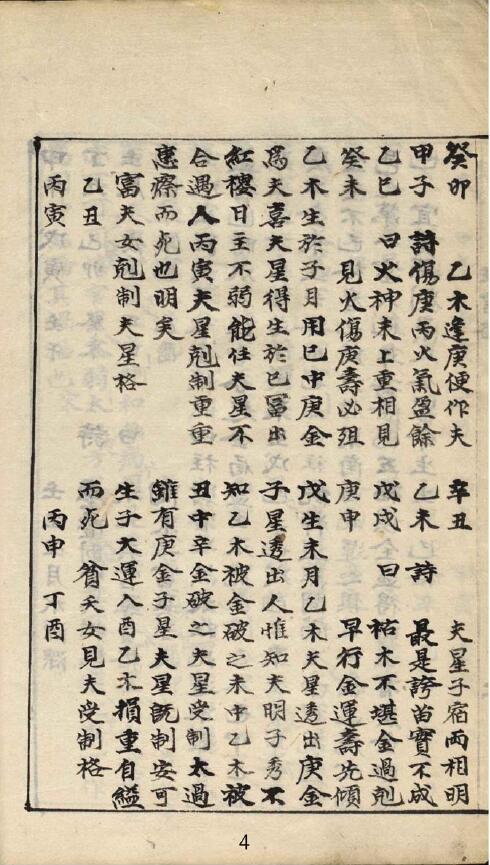 癸卯 乙木逢庚便作夫
甲子 詩 傷庚丙火氣盈餘
乙巳 曰 火神未上重相見
癸未 見火傷庚壽必殂
乙木生於子月用巳中庚金
為夫喜夫星得生於巳冨出
紅樓日主不弱能任夫星不
合遇入丙寅夫星剋制重重
患瘵而死也明矣
富夫女剋制夫星格
乙丑
丙寅
辛丑 夫星子宿兩相明
乙未 詩 最是誇苗實不成
戊戌 曰 祐木不堪金過剋
庚申 早行金運壽先傾
戊生未月乙木夫星透出庚金
子星透出人惟知夫明子秀不
知乙木被金破之未中乙木被
丑中辛金破之夫星受制太過
雖有庚金子星夫星既制安可
生子大運入酉乙木損重自縊
而死 貧夭女見夫受制格
丙申 丁酉
4